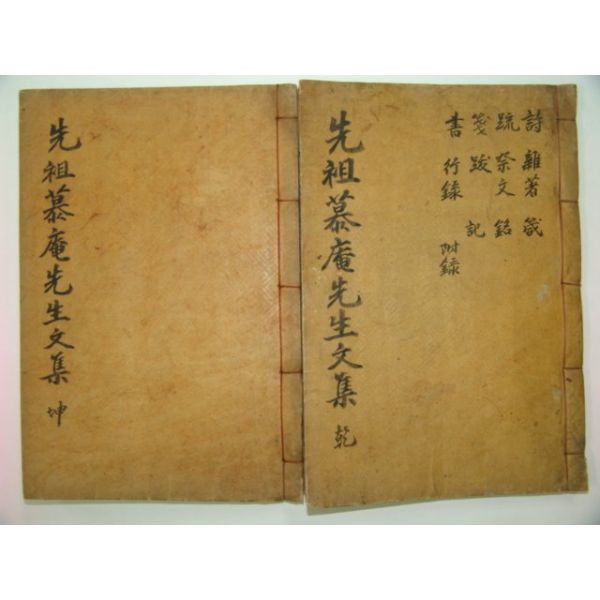 詩 雜著 箴
疏 祭文 銘
箋 跋 記
書 行錄 附錄
先祖慕庵先生文集 乾
先祖慕庵先生文集 坤